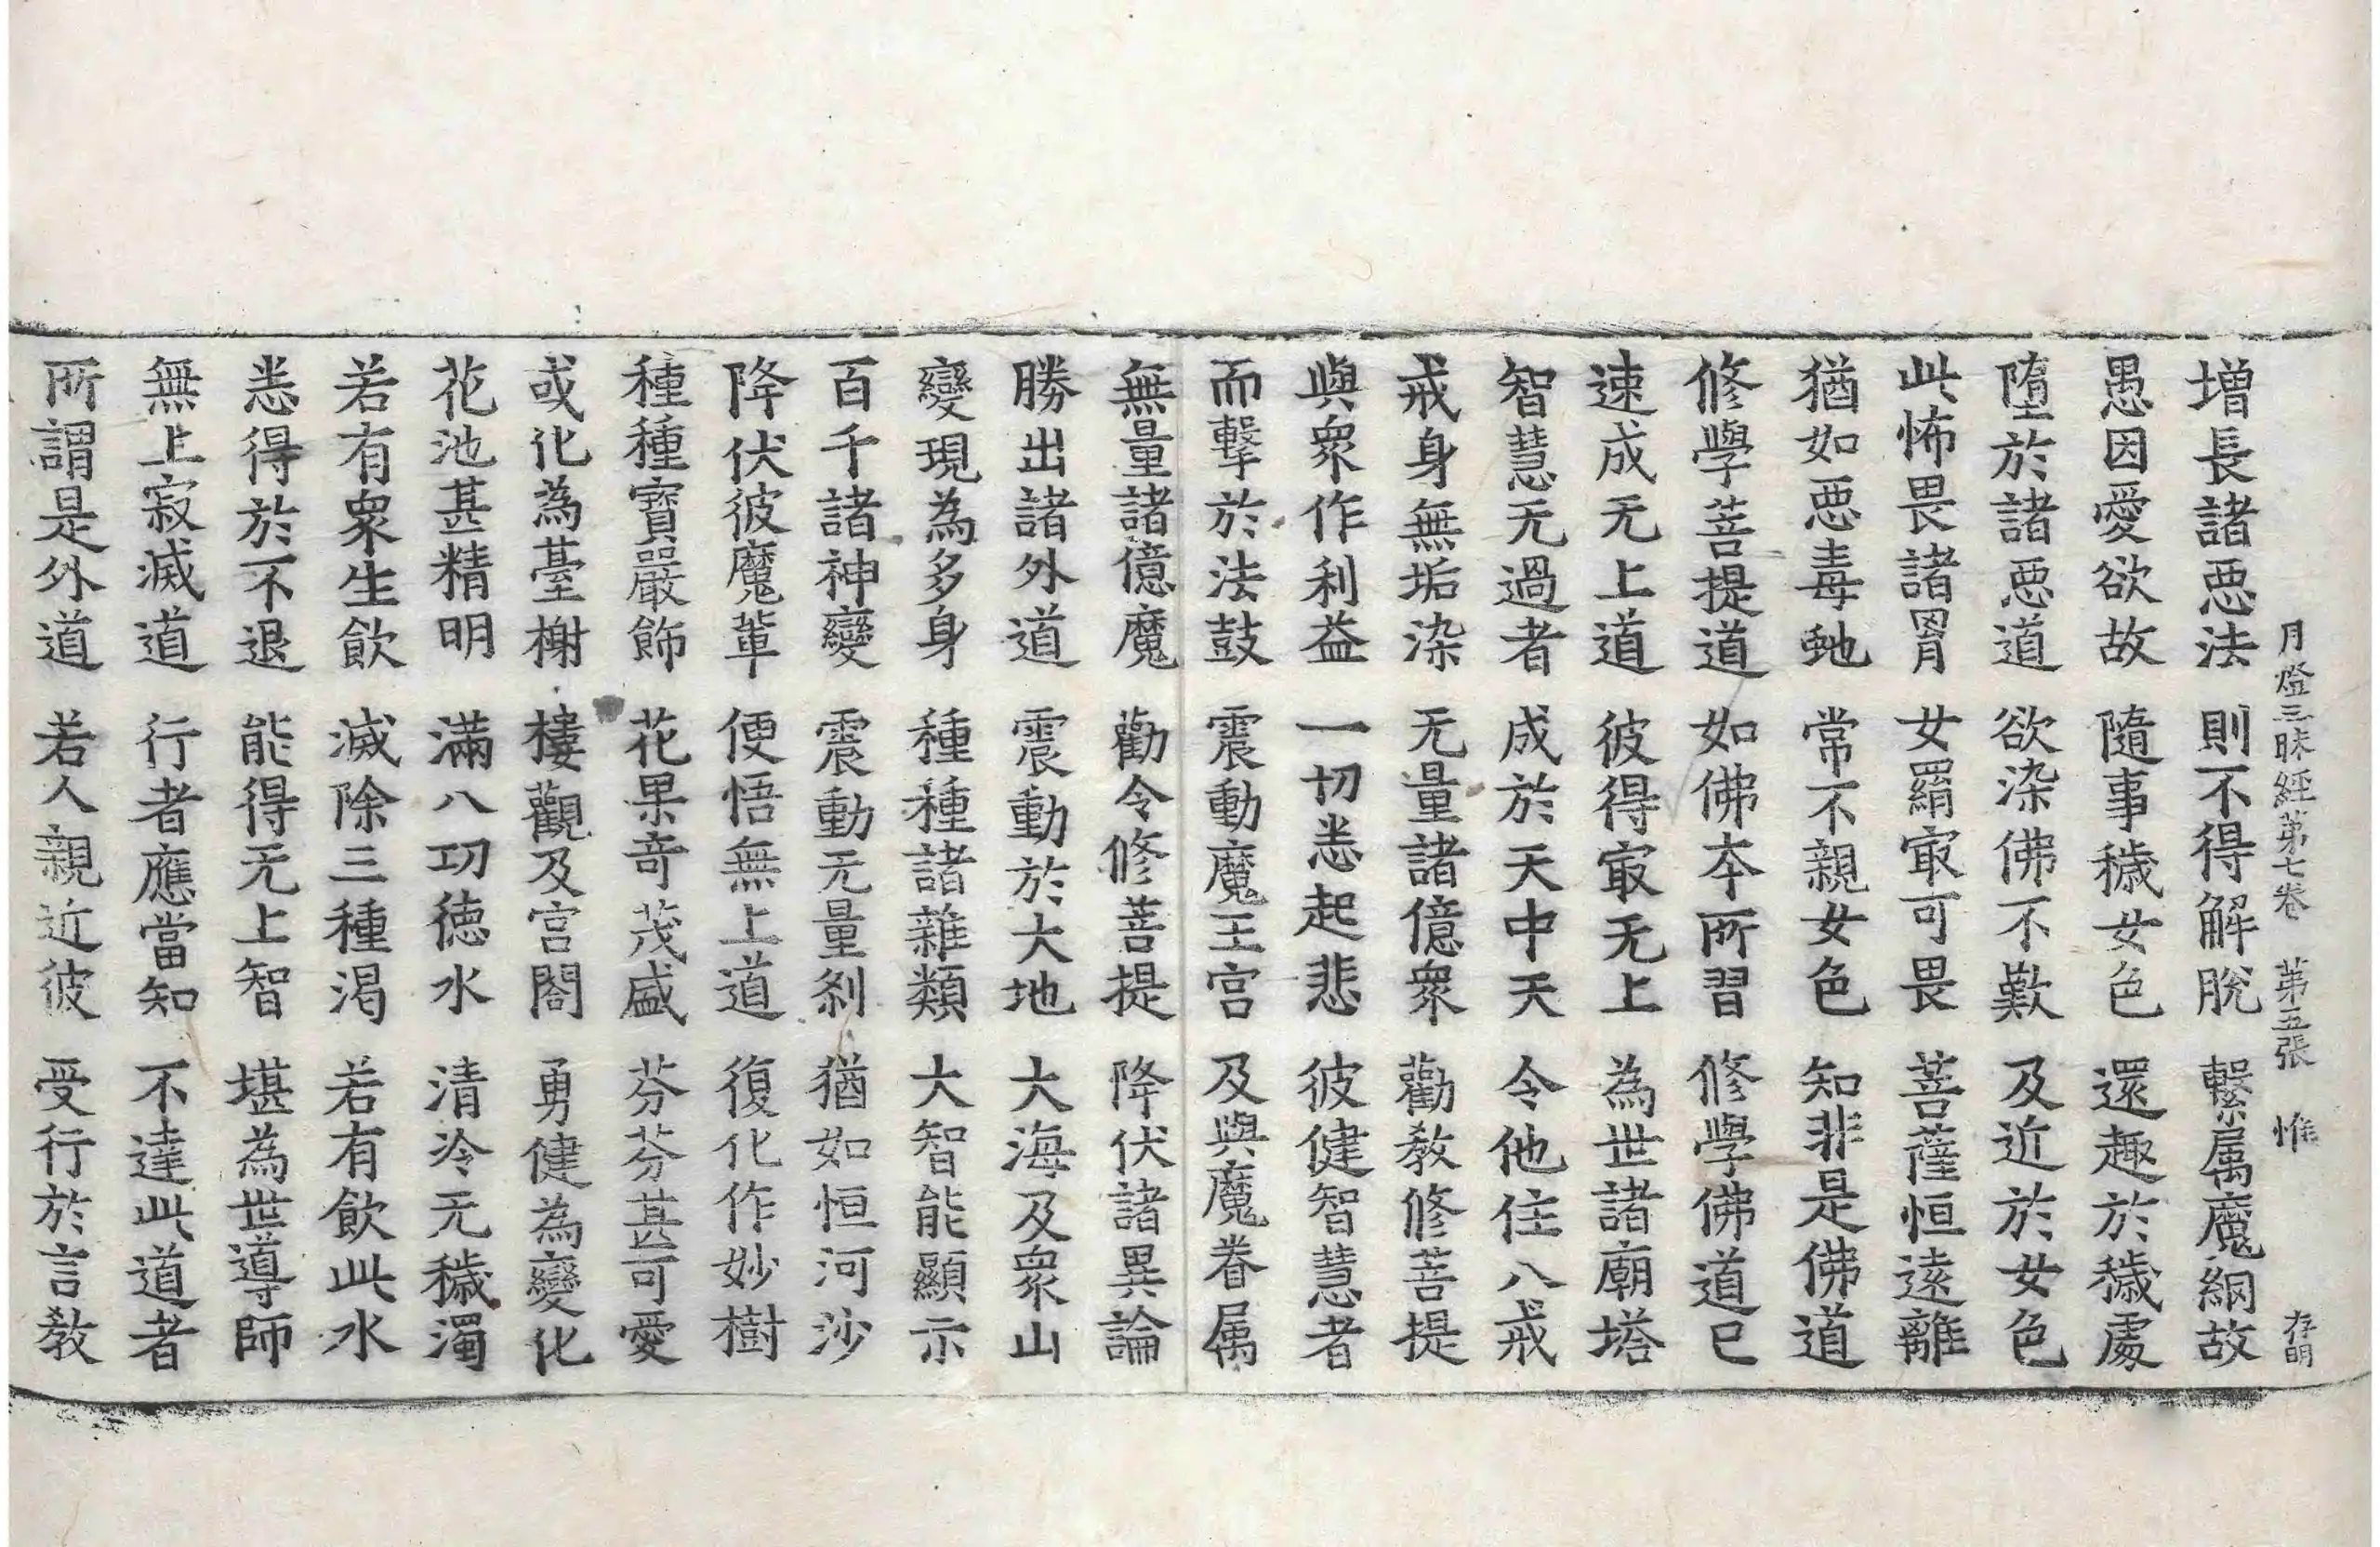 月燈三昧經第七卷　第五張　惟　存明
增長諸惡法　則不得解脫　繫属魔網故
愚因愛欲故　隨事穢女色　還趣於穢處
墮於諸惡道　欲染佛不歎　及近於女色
此怖畏諸罥　女羂㝡可畏　菩薩恒遠離
猶如惡毒虵　常不親女色　知非是佛道
修學菩提道　如佛本所習　修學佛道已
速成无上道　彼得㝡无上　為世諸廟塔
智慧无過者　成於天中天　令他住八戒
戒身無垢染　无量諸億衆　勸教修菩提
與衆作利益　一切悉起悲　彼健智慧者
而擊於法鼓　震動魔王宫　及與魔眷属
無量諸億魔　勸令修菩提　降伏諸異論
勝出諸外道　震動於大地　大海及衆山
變現為多身　種種諸雜類　大智能顯示
百千諸神變　震動无量剎　猶如恒河沙
降伏彼魔軰　便悟無上道　復化作妙樹
種種寶嚴飾　花果奇茂盛　芬芬甚可愛
或化為臺榭　樓觀及宫閣　勇健為變化
花池甚精明　滿八功德水　清泠无穢濁
若有衆生飲　滅除三種渴　若有飲此水
悉得於不退　能得无上智　堪為世導師
無上寂滅道　行者應當知　不達此道者
所謂是外道　若人親近彼　受行於言教